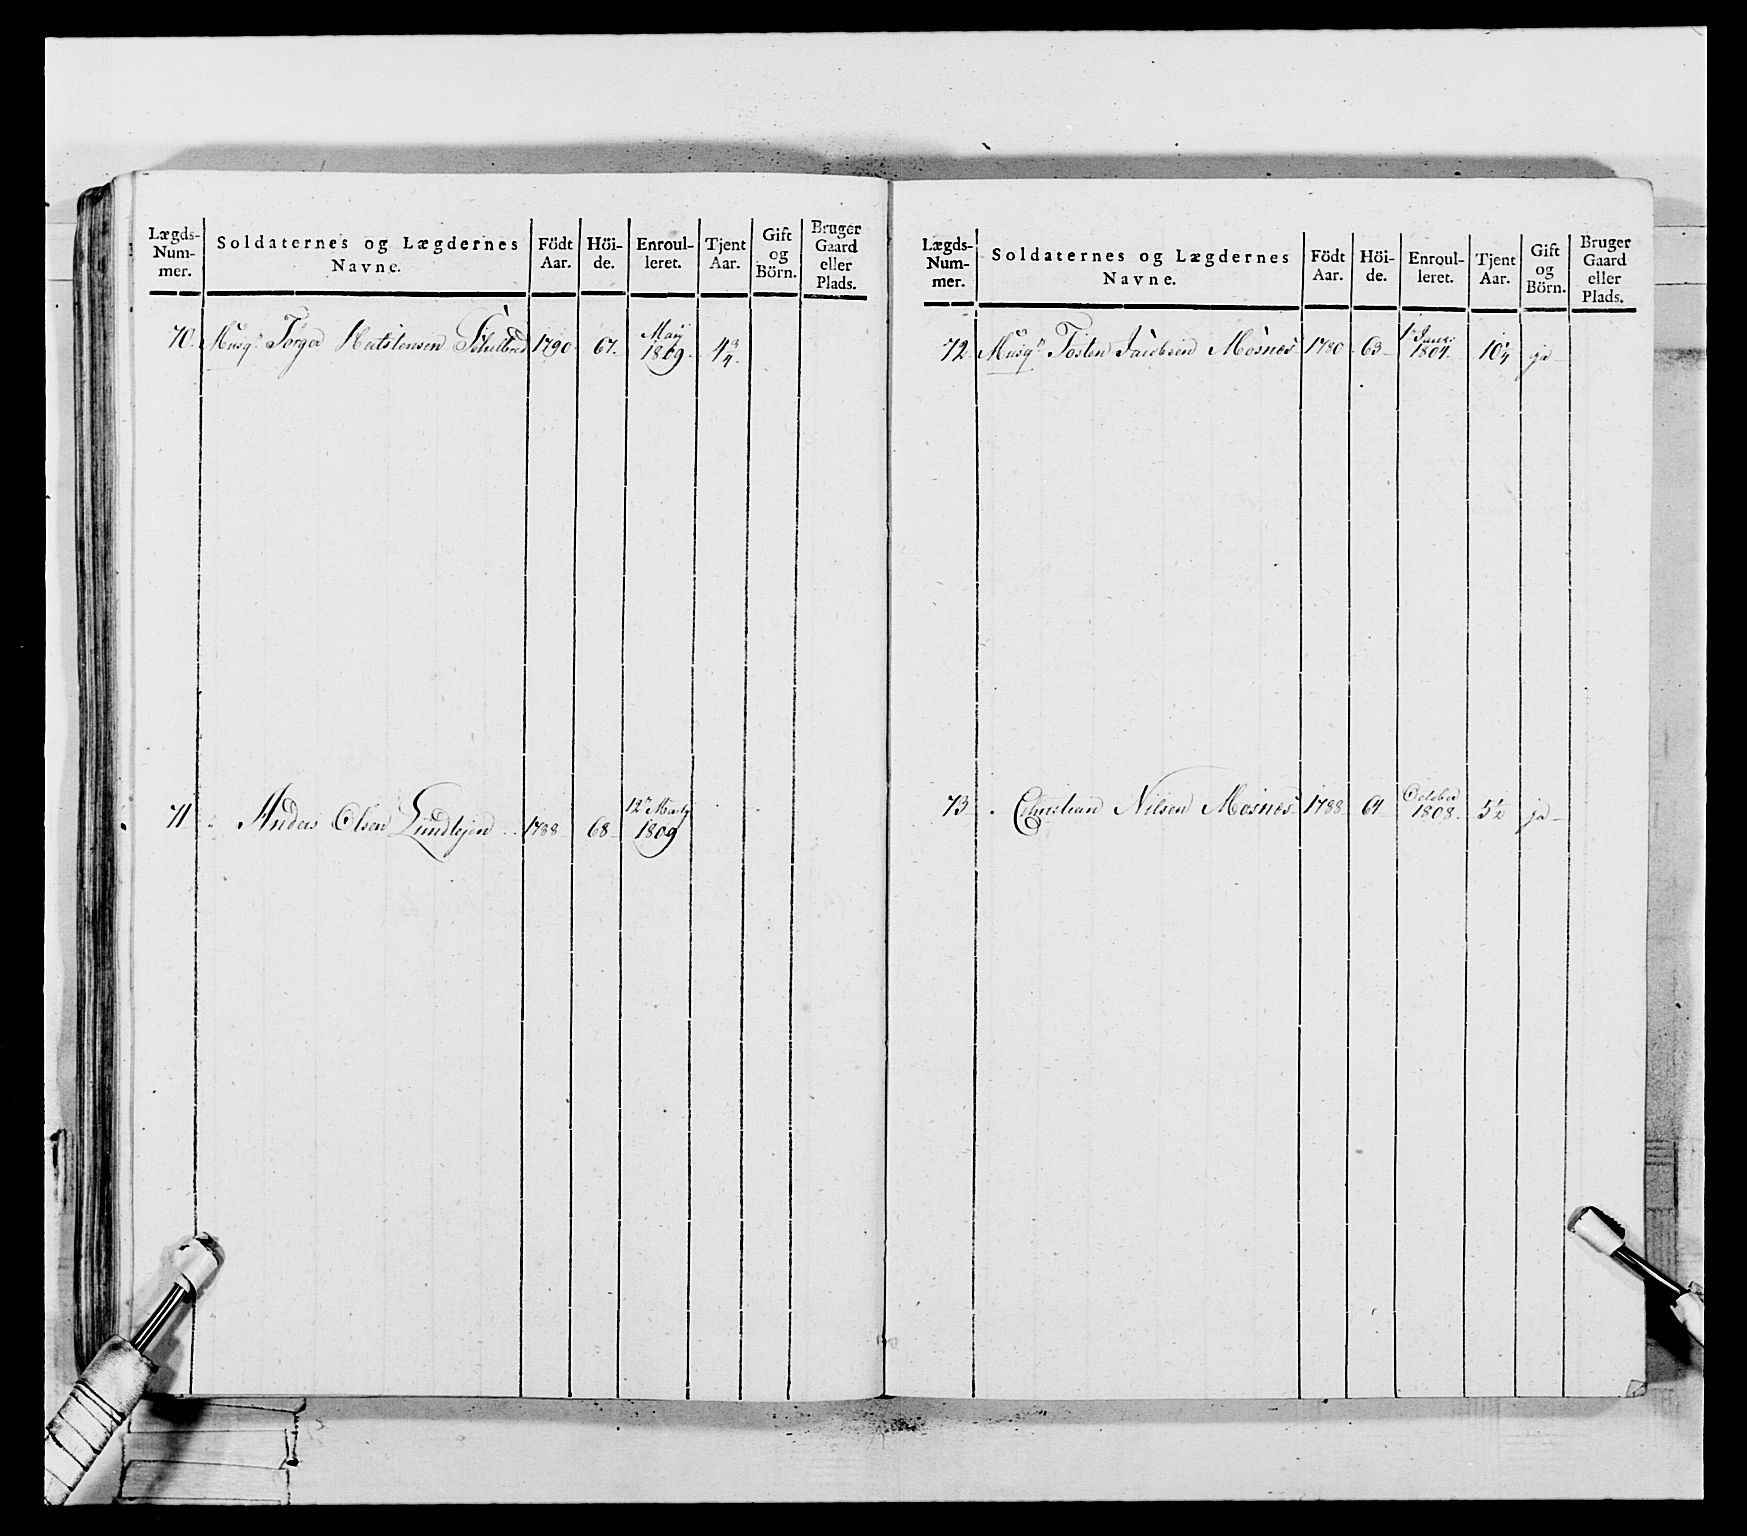 Lægds-Num-mer. Soldaternes og Lægdernes Navne. Födt Aar. Höi-de. Enroul-leret. Tjent Aar. Gift og Börn. Bruger Gaard eller Plads.
70. Musqr. Törger 1790 67. May 1809 4 3/4.
71 " Anders Olsen Lundtejen 1788 68 12te Marty 1809
Lægds-Num-mer. Soldaternes og Lægdernes Navne. Födt Aar. Höi-de. Enroul-leret. Tjent Aar. Gift og Börn. Bruger Gaard eller Plads.
72. Musqr Tosten Jacobsen Mosnes 1780 63 1te Janr: 1804. 10 1/4 ja
73 Christian Nilsen Mosnes 1788 64 October 1808. 5 1/2 ja